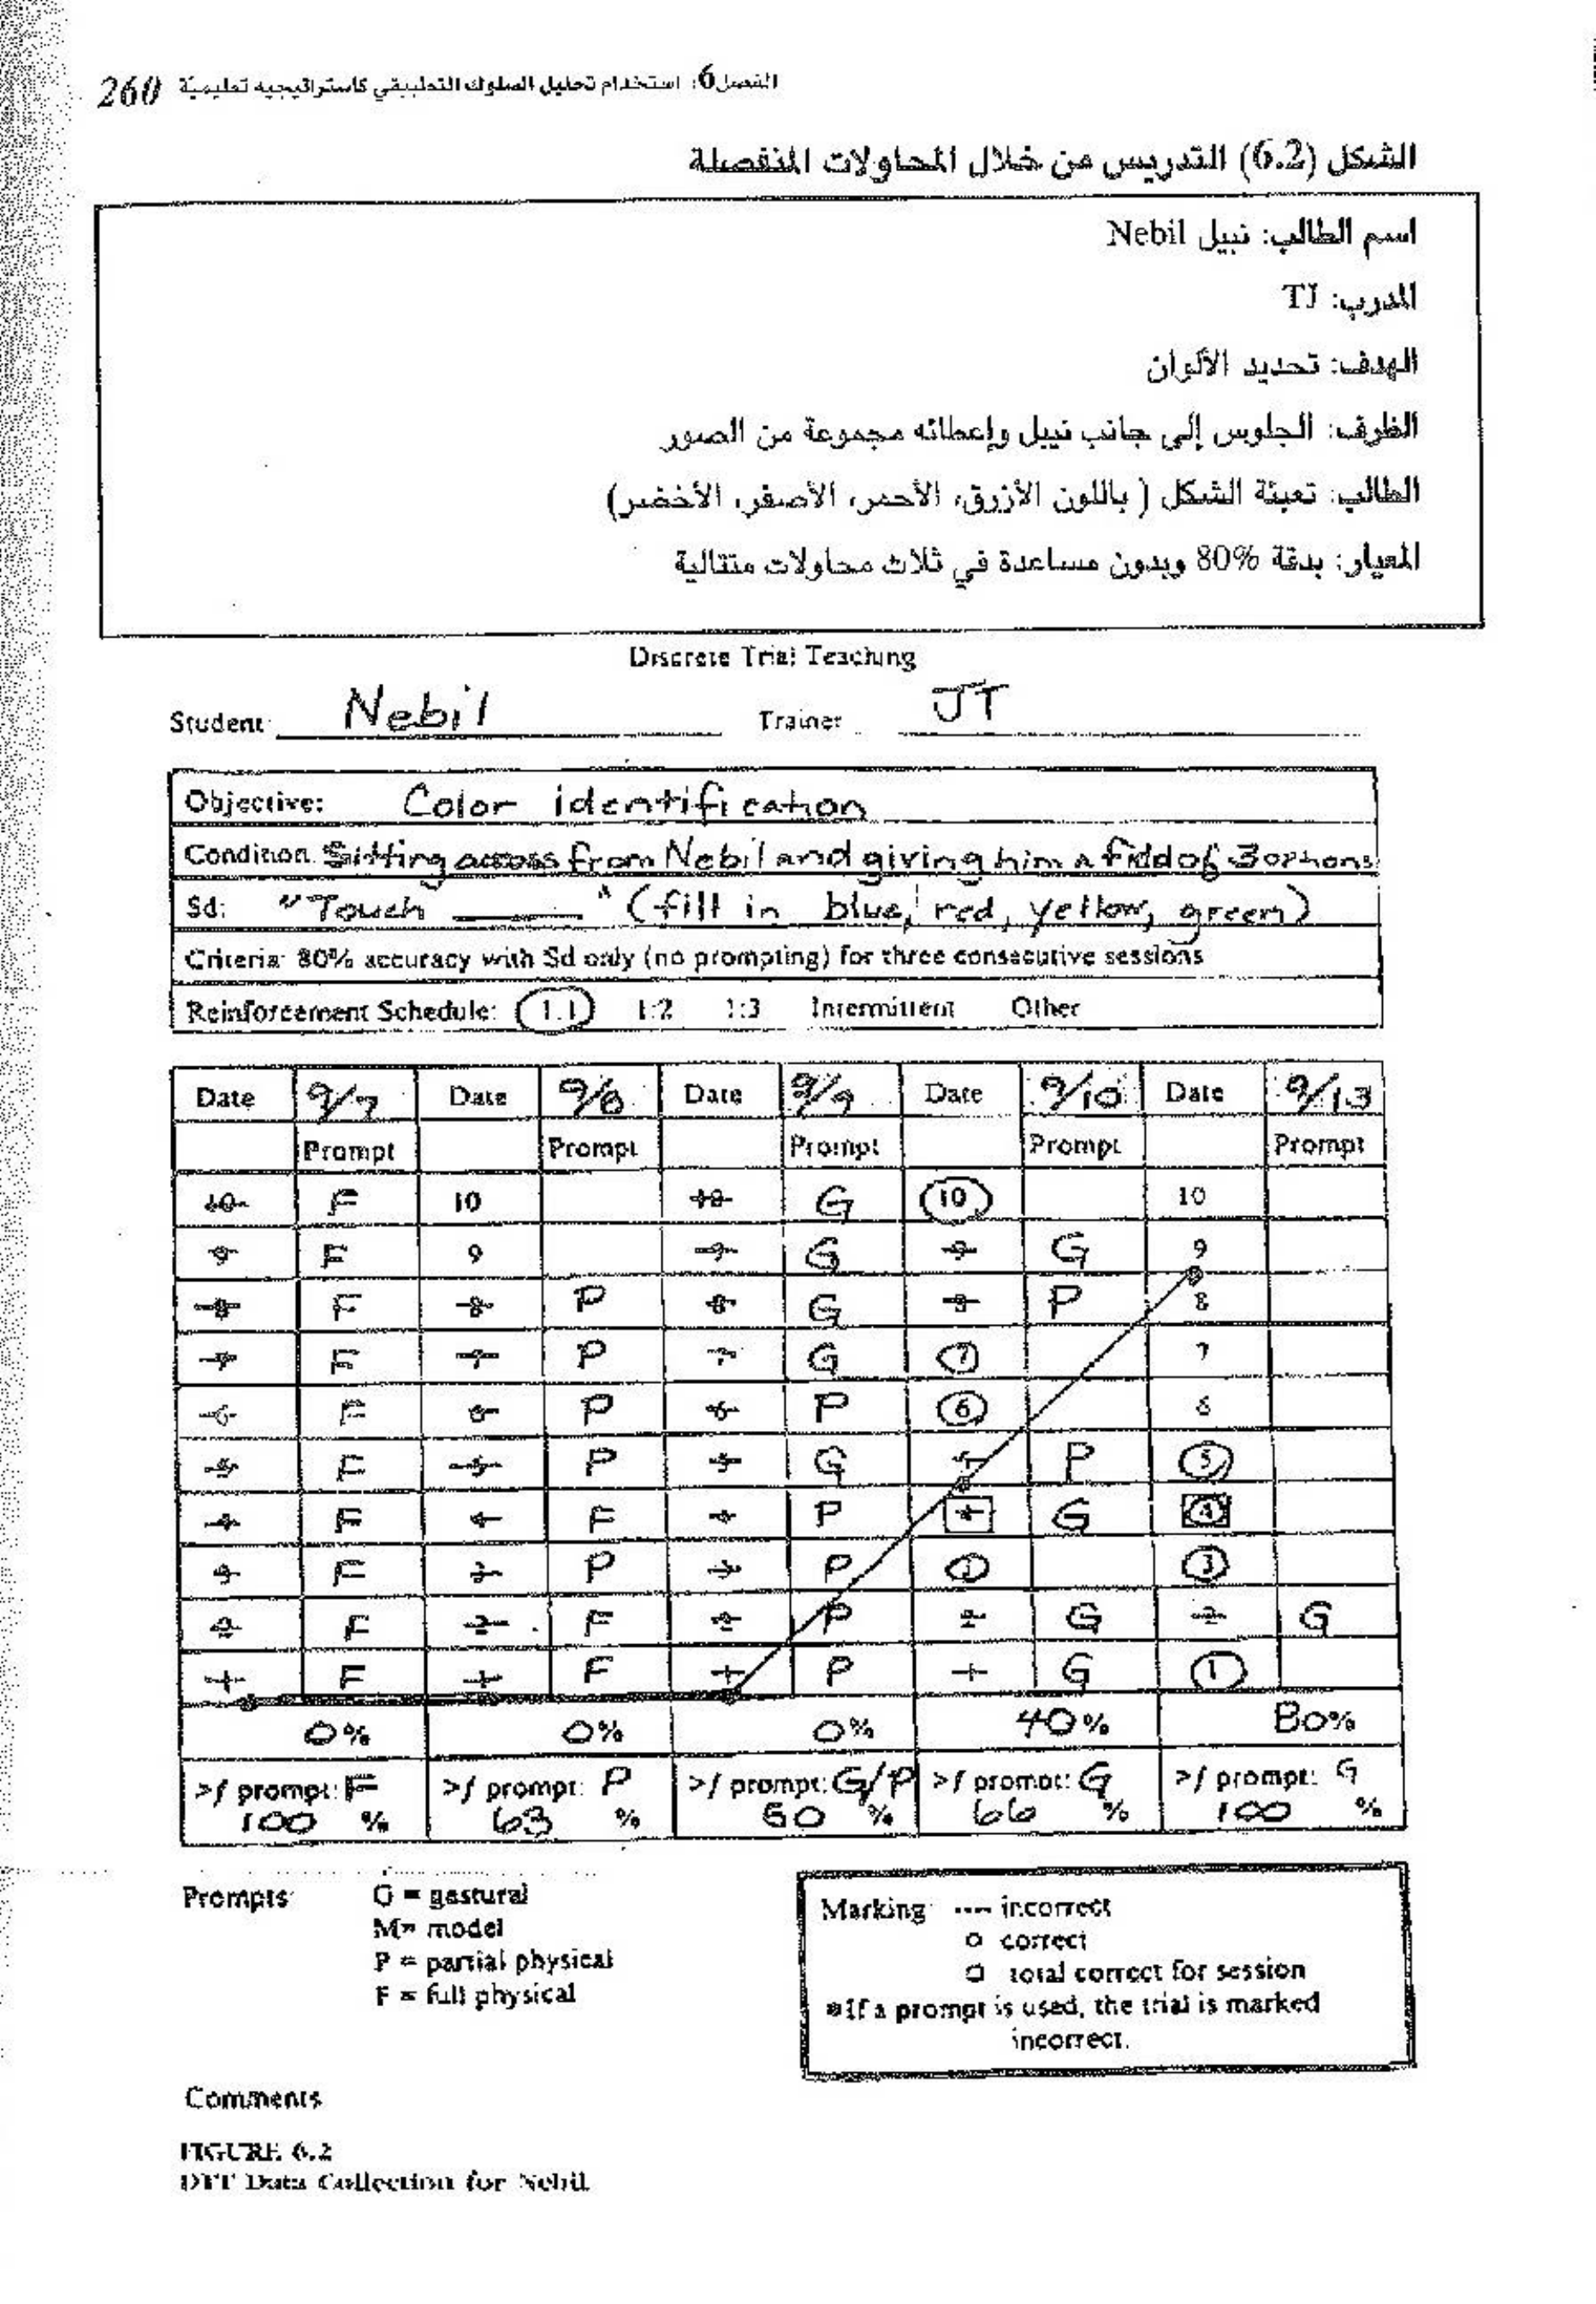 260 الفصل 6: استخدام تحليل السلوك التطبيقي كاستراتيجيه تعليميّة
الشكل (6.2) التدريس من خلال المحاولات المنفصلة
اسم الطالب: نبيل Nebil
المدرب: TJ
الهدف: تحديد الألوان
الظرف: الجلوس إلى جانب نبيل وإعطائه مجموعة من الصور
الطالب: تعبئة الشكل ( باللون الأزرق، الأحمر، الأصفر، الأخضر)
المعيار: بدقة 80% وبدون مساعدة في ثلاث محاولات متتالية
Discrete Trial Teaching
Student: Nebil Trainer JT
Objective: Color identification
Condition: Sitting across from Nebil and giving him a field of 3 options
Sd: "Touch ____" (fill in blue, red, yellow, green)
Criteria: 80% accuracy with Sd only (no prompting) for three consecutive sessions
Reinforcement Schedule: 1:1 1:2 1:3 Intermittent Other
Date 9/7 Date 9/8 Date 9/9 Date 9/10 Date 9/13
Prompt Prompt Prompt Prompt Prompt
10 F 10 10 G 10 10
9 F 9 9 G 9 G 9
8 F 8 P 8 G 8 P 8
7 F 7 P 7 G 7 7
6 F 6 P 6 P 6 6
5 F 5 P 5 G 5 P 5
4 F 4 F 4 P 4 G 4
3 F 3 P 3 P 3 3
2 F 2 F 2 P 2 G 2 G
1 F 1 F 1 P 1 G 1
0% 0% 0% 40% 80%
>/ prompt: F >/ prompt: P >/ prompt: G/P >/ prompt: G >/ prompt: G
100 % 63 % 50 % 66 % 100 %
Prompts: G = gestural
M= model
P = partial physical
F = full physical
Marking: ---- incorrect
o correct
□ total correct for session
*If a prompt is used, the trial is marked
incorrect.
Comments
FIGURE 6.2
DTT Data Collection for Nebil